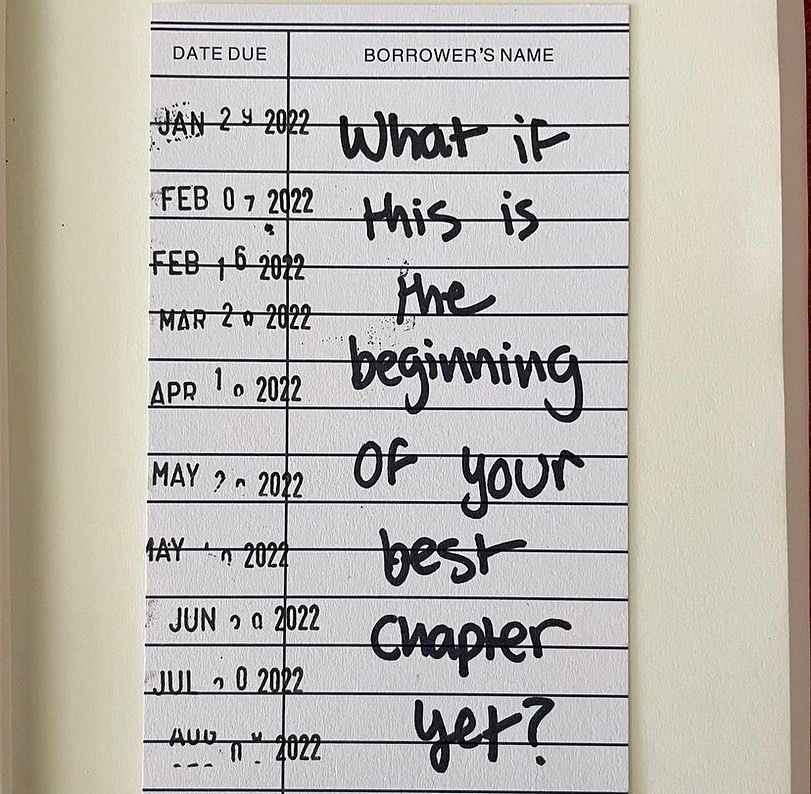 DATE DUE BORROWER'S NAME
JAN 29 2022 What if
FEB 07 2022 this is
FEB 16 2022 the
MAR 20 2022 beginning
APR 10 2022
MAY 2022 of your
MAY 2022 best
JUN 2022 chapter
JUL 2022
AUG 2022 yet?